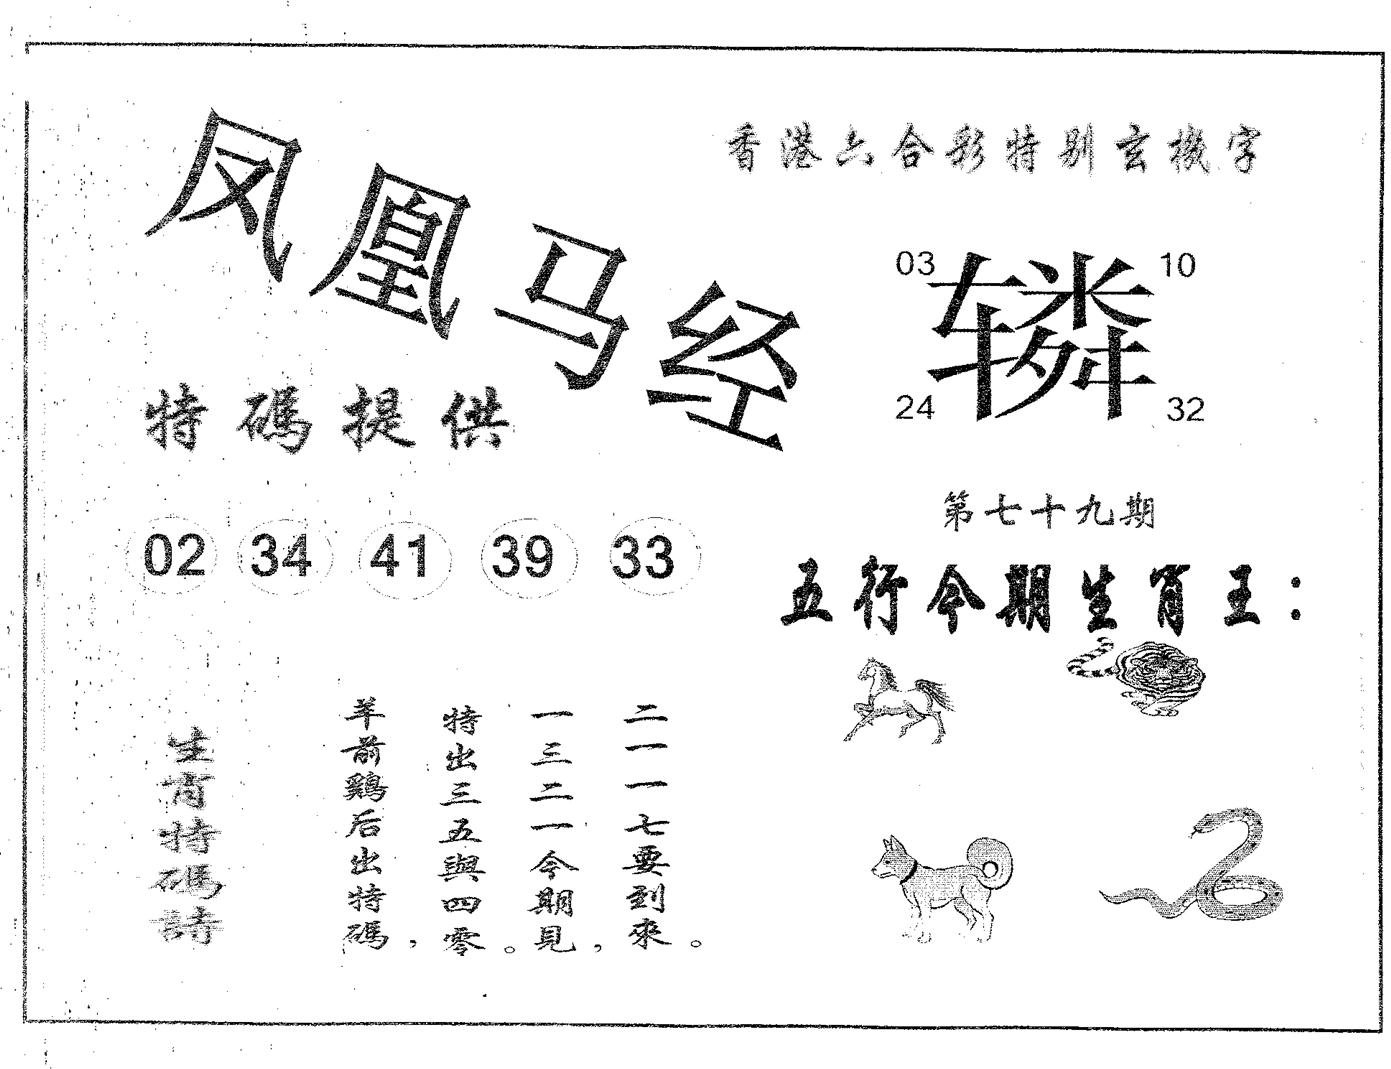 凤凰马经
香港六合彩特别玄機字
03
10
辚
24
32
特碼提供
02 34 41 39 33
第七十九期
五行今期生肖王：
生肖特碼詩
羊前鷄后出特碼，
特出三五與四零。
一三二一今期見，
二一一七要到來。